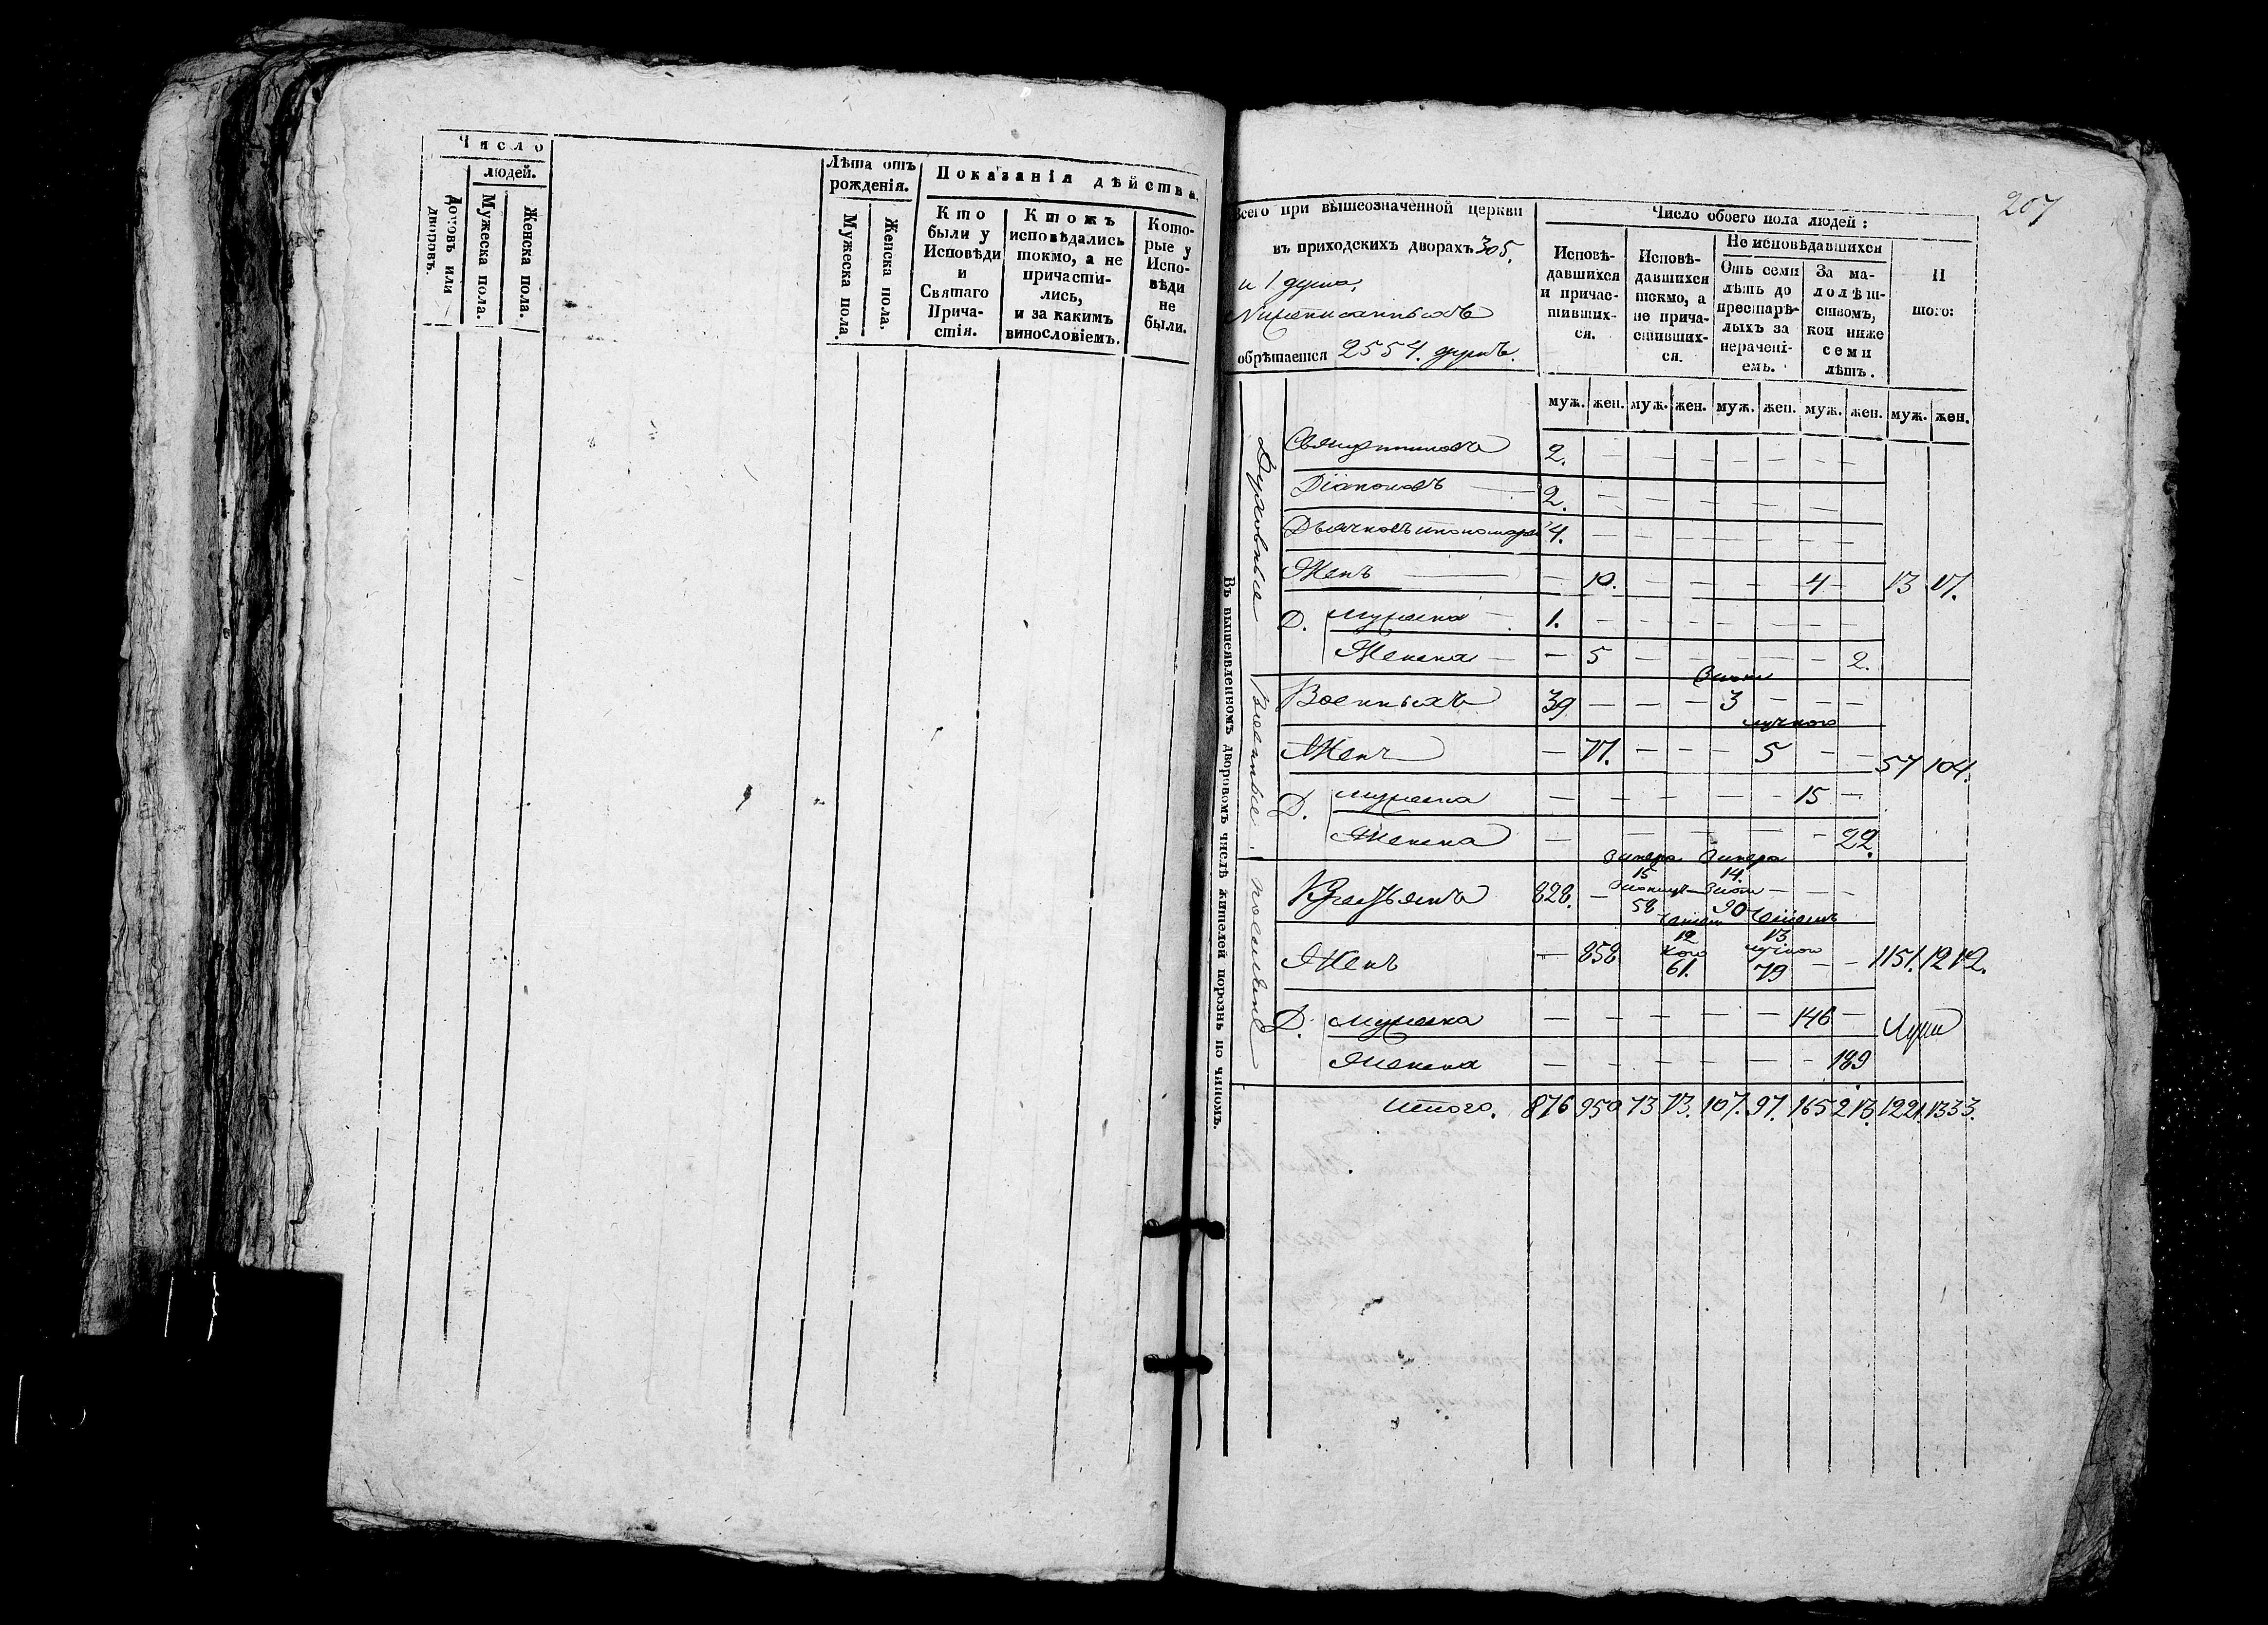 Число
людей.
Домовъ или
дворовъ.
Мужеска пола.
Женска пола.
Лѣта отъ
рожденія.
Мужеска пола.
Женска пола.
Показанія дѣйства.
Кто
были у
Исповѣди
и
Святаго
Прича-
стія.
Ктожъ
исповѣдались
токмо, а не
причасти-
лись,
и за какимъ
винословіемъ.
Кото-
рые у
Испо-
вѣди
не
были.
207
Всего при вышеозначенной церкви
въ приходскихъ дворахъ 305.
и 1 душа,
обрѣтается 2554. душъ.
Число обоего пола людей:
Исповѣ-
давшихся
и причас-
тивших-
ся.
Исповѣ-
давшихся
токмо, а
не прича-
стивших-
ся.
Не исповѣдавшихся
Отъ семи
лѣтъ до
престарѣ-
лыхъ за
нерачені-
емъ.
За ма-
лолѣт-
ствомъ,
кои ниже
семи
лѣтъ.
И
того:
муж. жен. муж. жен. муж. жен. муж. жен. муж. жен.
Въ вышеявленномъ дворовомъ числѣ жителей порознь по чиномъ.
Духовные
Священниковъ 2. — — — — — — —
Діаконовъ — 2. — — — — — — —
Дьячковъ и пономарей 4. — — — — — — —
Женъ — — 10. — — — — 4 — 13 17.
Д. мужеска — 1. — — — — — — —
Женска — — 5 — — — — — 2.
Военные
Военныхъ 39 — — — 3 — — —
Женъ — 77. — — — 5 — — 57 104.
Д. мужеска — — — — — — 15 —
Женска — — — — — — — 22.
поселяне
Крестьянъ 828. — 15 58 — 14. 90 — — —
Женъ — 858 12 61. 13 79 — — 1151. 1212.
Д. мужеска — — — — — — 146 — душъ
Женска — — — — — — — 189
Итого. 876 950 73 73. 107. 97. 165 213. 1221. 1333.